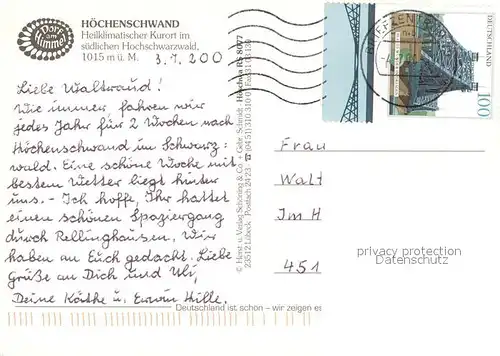 Dorf am Himmel
HÖCHENSCHWAND
Heilklimatischer Kurort im
südlichen Hochschwarzwald,
1015 m ü. M.
3.7.200
Liebe Waltraud!
Wie immer fahren wir
jedes Jahr für 2 Wochen nach
Höchenschwand im Schwarz=
wald. Eine schöne Woche mit
bestem Wetter liegt hinter
uns. - Ich hoffe, Ihr hattet
einen schönen Spaziergang
durch Rellinghausen, Wir
haben an Euch gedacht. Liebe
Grüße an Dich und Uli,
Deine Käthe u. Erwin Hille.
Deutschland ist schön – wir zeigen es
© Horst u. Verlag Schöning & Co. + Gebr. Schmidt
23512 Lübeck · Postfach 24 23 ☎ (04 51) 310 310
DEUTSCHLAND
100
BRIEFZENTRUM
Frau
Walt
Im H
451
privacy protection
Datenschutz